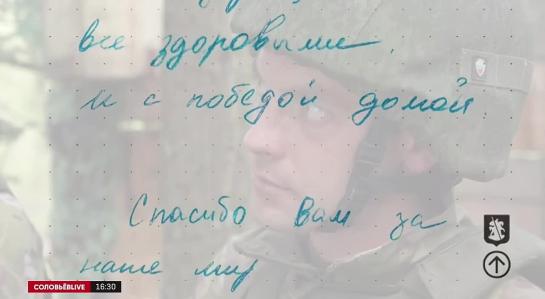 все здоровыми.
и с победой домой
Спасибо Вам за
наше мир
СОЛОВЬЁВLIVE 16:30